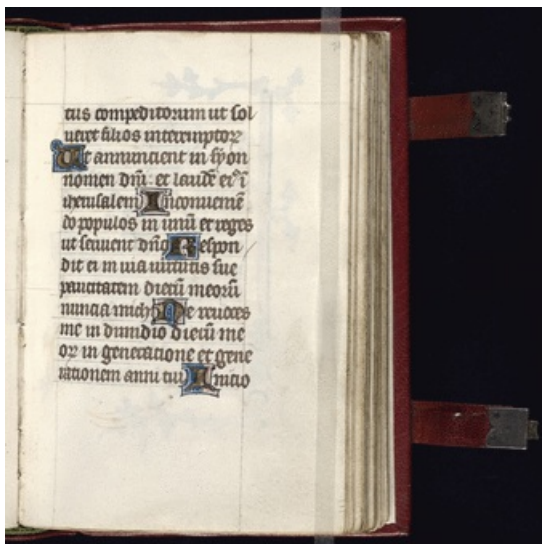 tus compeditorum ut sol
ueret filios interemptoꝝ
Ut annuncient in syon
nomen dñi: et laudē eiꝰ ī
iherusalem In conueniē
do populos in unū et reges
ut seruient dño Respon
dit ei in uia uirtutis sue
paucitatem dierū meorū
nuncia michi Ne reuoces
me in dimidio dierū me
oꝝ in generatione et gene
rationem anni tui Inicio